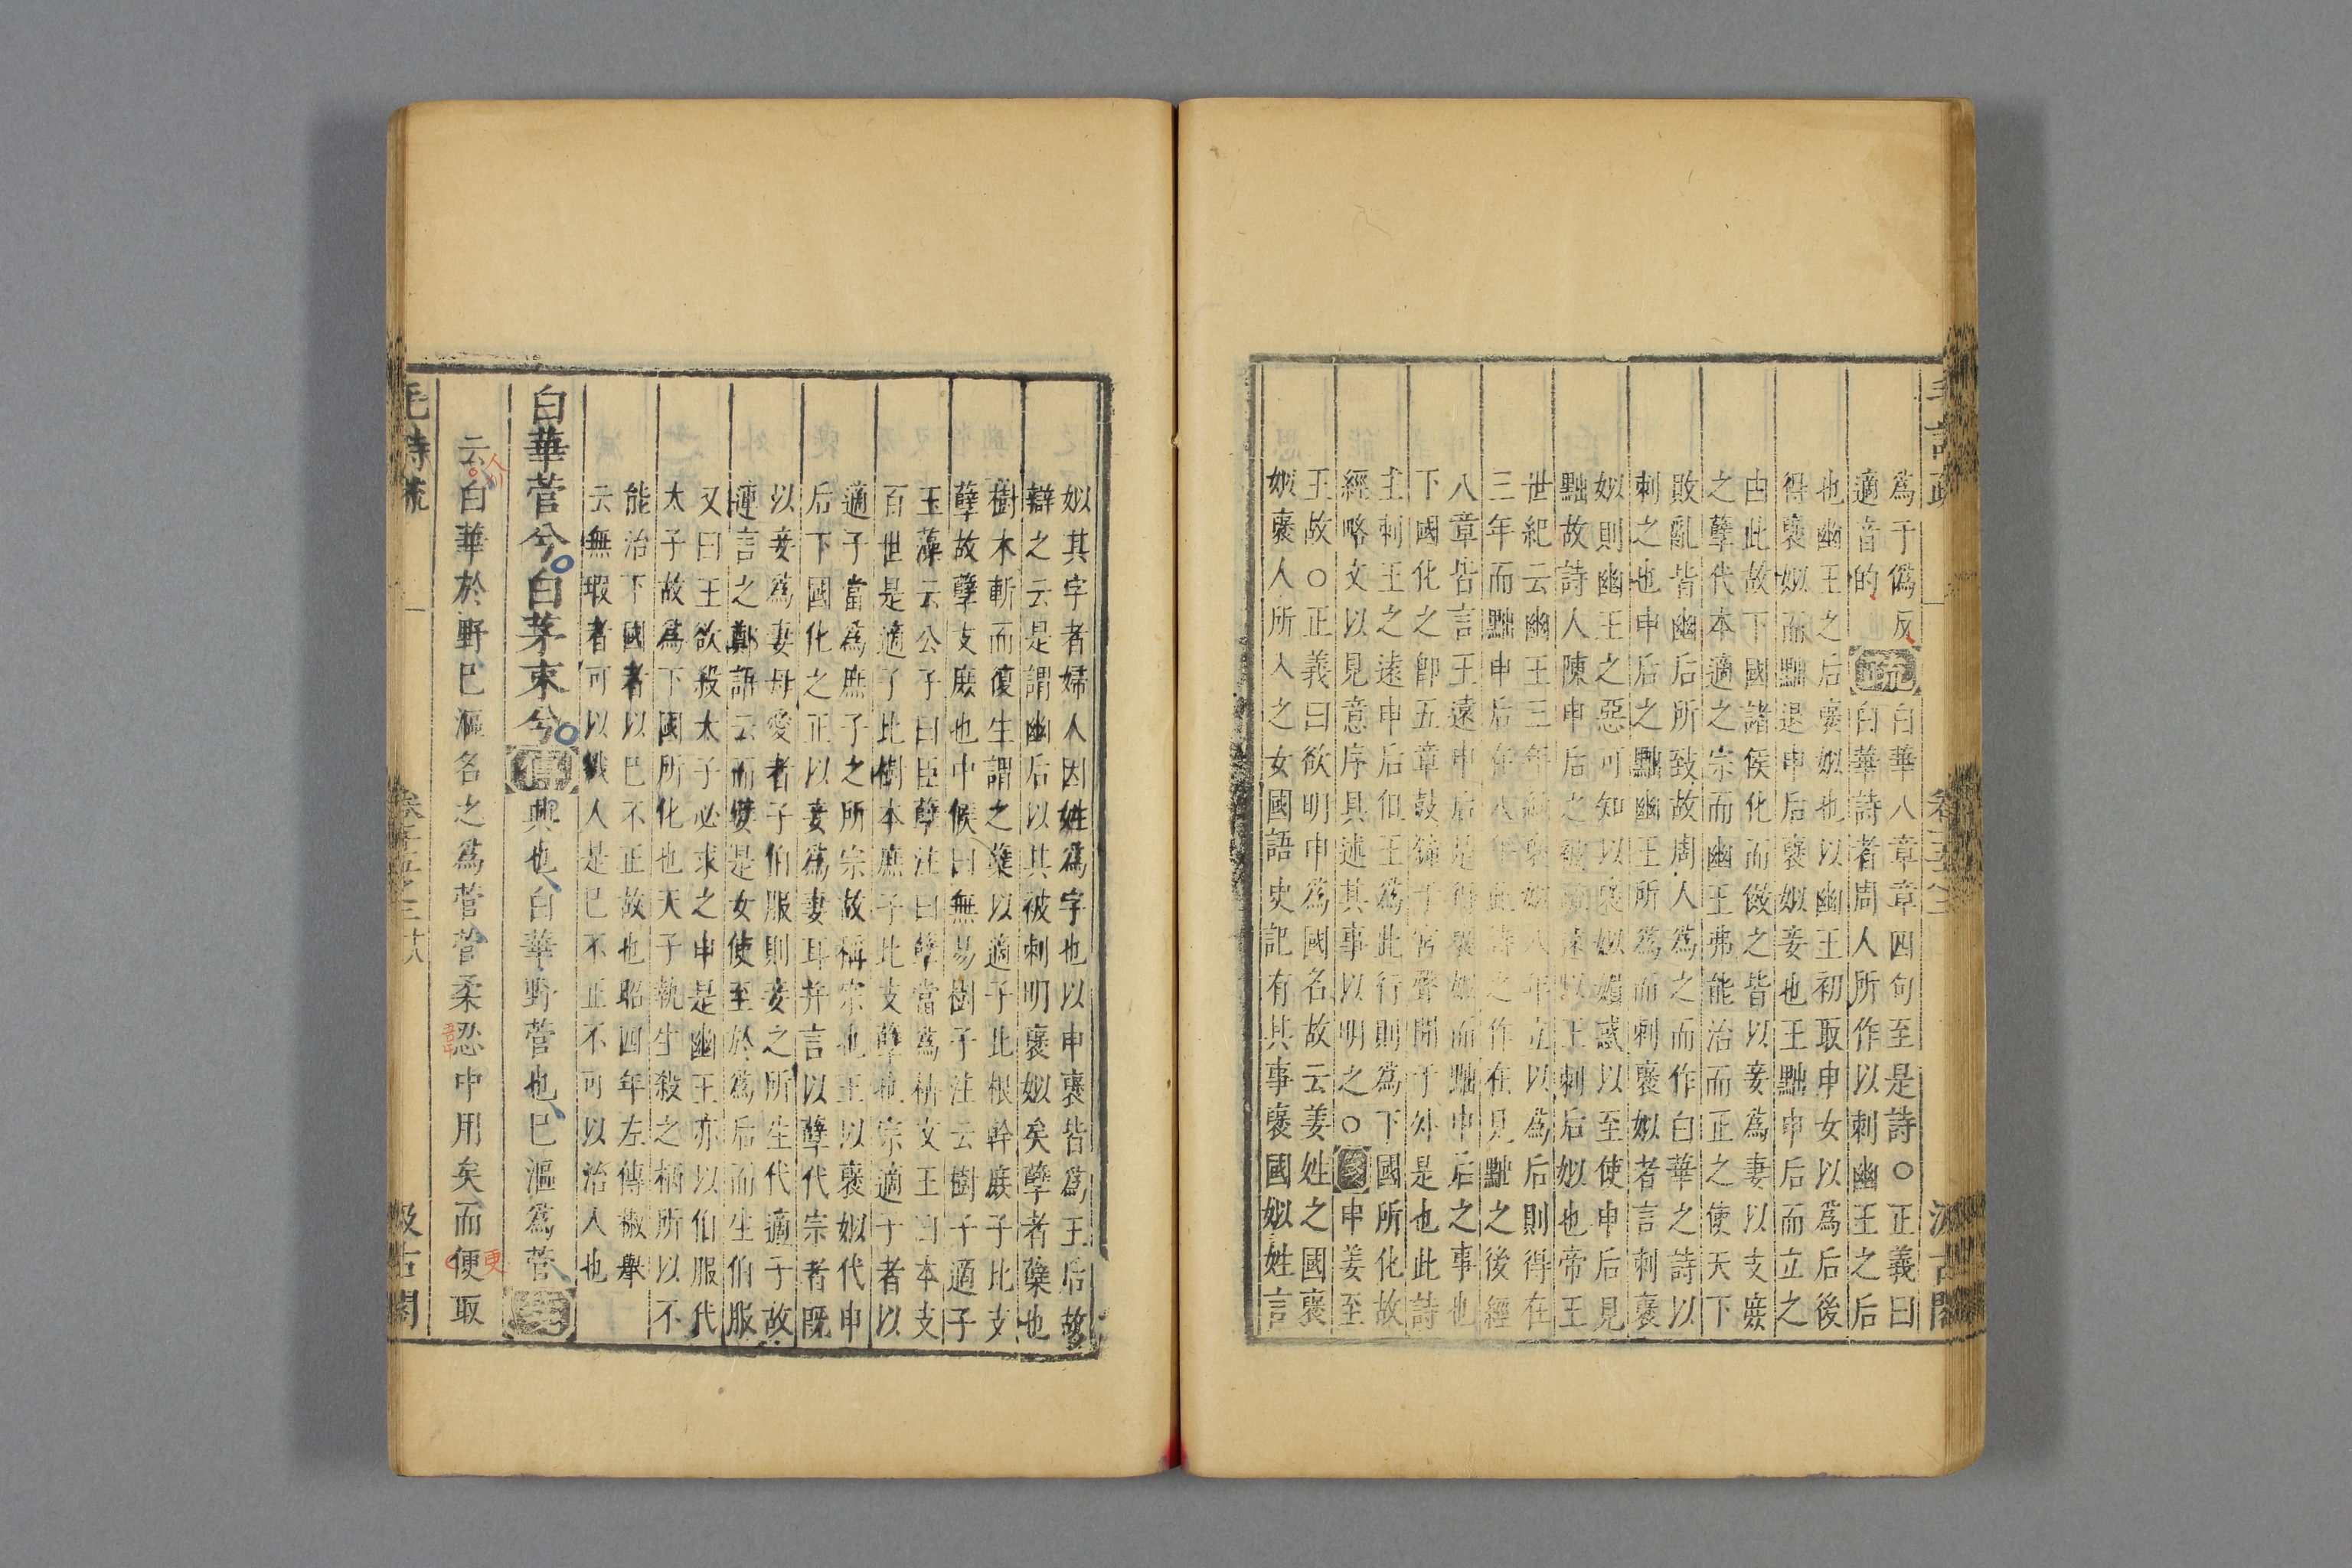 爲于僞反
適音的
疏
白華八章章四句至是詩○正義曰
白華詩者周人所作以刺幽王之后
也幽王之后褒姒也以幽王初取申女以爲后後
得褒姒而黜退申后褒姒妾也王黜申后而立之
由此故下國諸侯化而傚之皆以妾爲妻以支庶
之孽代本適之宗而幽王弗能治而正之使天下
敗亂皆幽后所致故周人爲之而作白華之詩以
刺之也申后之黜幽王所爲而刺褒姒者言刺褒
姒則幽王之惡可知以褒姒媚惑以至使申后見
黜故詩人陳申后之被
王刺后姒也帝王
世紀云幽王三年
褒姒八年立以爲后則得在
三年而黜申后
詩之作在見黜之後經
八章皆言王遠申后是得褒姒而黜申后之事也
下國化之卽五章鼓鐘于宮聲聞于外是也此詩
主刺王之遠申后但王爲此行則爲下國所化故
經略文以見意序具述其事以明之○
申姜至
王故○正義曰欲明申爲國名故云姜姓之國褒
姒褒人所入之女國語史記有其事褒國姒姓言
毛詩疏
汲古閣
姒其字者婦人因姓爲字也以申褒皆爲王后故
辯之云是謂幽后以其被刺明褒姒矣孽者蘖也
樹木斬而復生謂之蘖以適子比根幹庶子比支
孽故孽支庶也中候曰無易樹子注云樹子適子
玉藻云公子曰臣孽注曰孽當爲枿文王曰本支
百世是適子比樹本庶子比支孽也宗適子者以
適子當爲庶子之所宗故稱宗也王以褒姒代申
后下國化之正以妾爲妻耳并言以孽代宗者既
以妾爲妻母愛者子伯服則妾之所生代適子故
連言之鄭語云而嬖是女使至於爲后而生伯服
又曰王欲殺太子必求之申是幽王亦以伯服代
太子故爲下國所化也天子執生殺之柄所以不
能治下國者以已不正故也昭四年左傳椒舉
云無瑕者可以戮人是已不正不可以治人也
白華菅兮白茅束兮
傳
興也白華野菅也已漚爲菅
箋
云白華於野已漚名之爲菅菅柔忍中用矣而便取
更
毛詩疏
卷十五之二
汲古閣